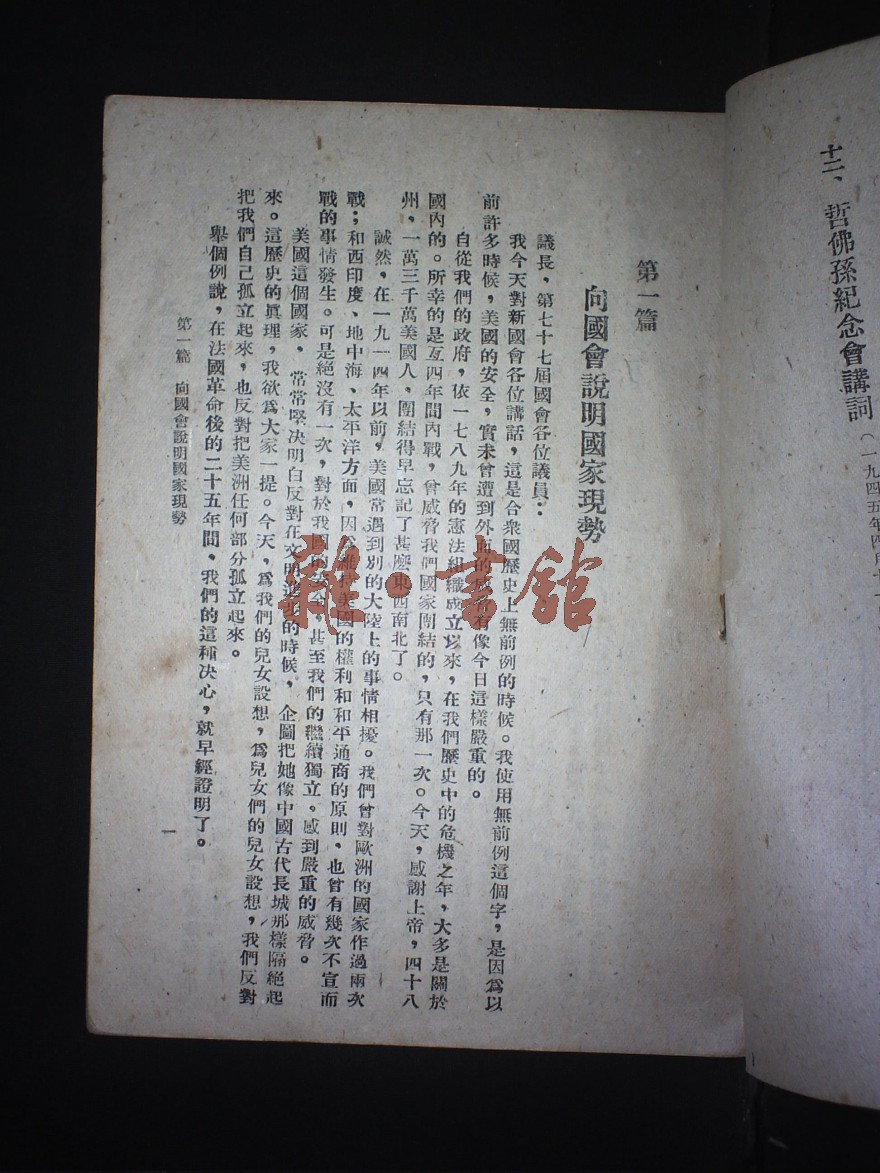 十二、哲佛孫紀念會講詞(一九四五年四月十
第一篇
向國會說明國家現勢
議長,第七十七屆國會各位議員:
我今天對新國會各位講話,這是合衆國歷史上無前例的時候。我使用無前例這個字,是因爲以
前許多時候,美國的安全,實未曾遭到外面的威脅有像今日這樣嚴重的。
自從我們的政府,依一七八九年的憲法組織成立以來,在我們歷史中的危機之年,大多是關於
國內的。所幸的是亙四年間內戰,曾威脅我們國家團結的,只有那一次。今天,感謝上帝,四十八
州,一萬三千萬美國人,團結得早忘記了甚麼東西南北了。
誠然,在一九一四年以前,美國常遇到別的大陸上的事情相擾。我們曾對歐洲的國家作過兩次
戰;和西印度、地中海、太平洋方面,因爲維持美國的權利和和平通商的原則,也曾有幾次不宣而
戰的事情發生。可是絕沒有一次,對於我國的安全,甚至我們的繼續獨立,感到嚴重的威脅。
美國這個國家,常常堅決明白反對在文明進步的時候,企圖把她像中國古代長城那樣隔絕起
來。這歷史的眞理,我欲爲大家一提。今天,爲我們的兒女設想,爲兒女們的兒女設想,我們反對
把我們自己孤立起來,也反對把美洲任何部分孤立起來。
舉個例說,在法國革命後的二十五年間,我們的這種決心,就早經證明了。
第一篇 向國會說明國家現勢
一
雜·書館